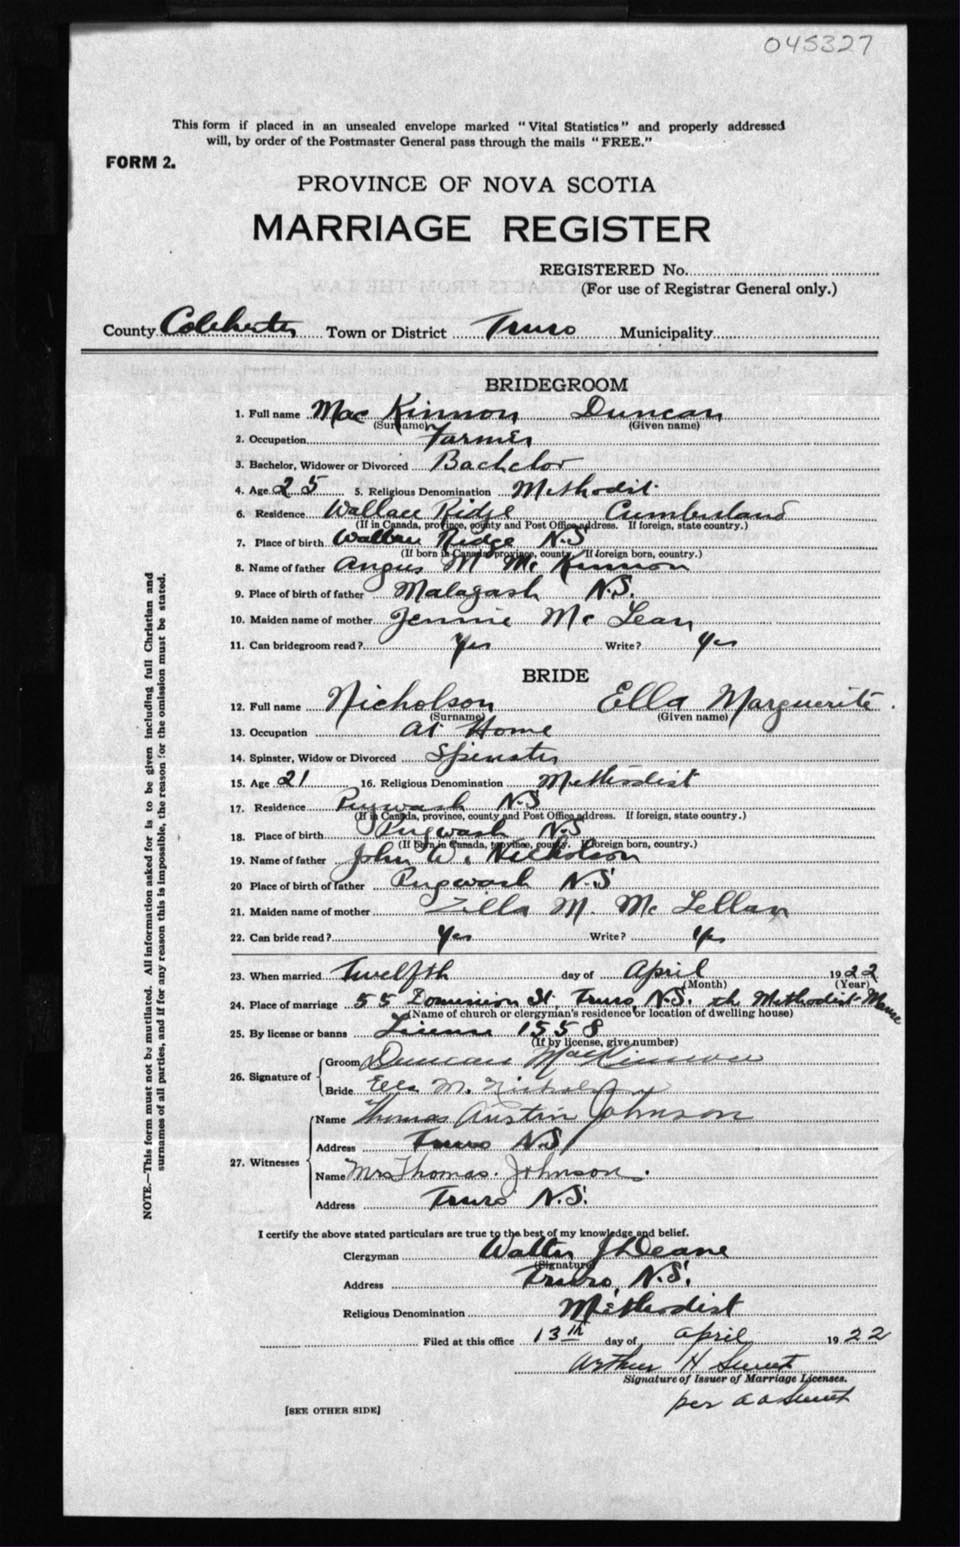 045327
This form if placed in an unsealed envelope marked "Vital Statistics" and properly addressed
will, by order of the Postmaster General pass through the mails "FREE."
FORM 2.
PROVINCE OF NOVA SCOTIA
MARRIAGE REGISTER
REGISTERED No.
(For use of Registrar General only.)
County Colchester Town or District Truro Municipality
BRIDEGROOM
1. Full name Mac Kinnon Duncan
(Surname) (Given name)
2. Occupation Farmer
3. Bachelor, Widower or Divorced Bachelor
4. Age 25 5. Religious Denomination Methodist
6. Residence Wallace Ridge Cumberland
(If in Canada, province, county and Post Office address. If foreign, state country.)
7. Place of birth Wallace Ridge N.S
(If born in Canada, province, county. If foreign born, country.)
8. Name of father Angus M Mc Kinnon
9. Place of birth of father Malagash N.S.
10. Maiden name of mother Jennie Mc Lean
11. Can bridegroom read? Yes Write? Yes
BRIDE
12. Full name Nicholson Ella Marguerite.
(Surname) (Given name)
13. Occupation At Home
14. Spinster, Widow or Divorced Spinster
15. Age 21 16. Religious Denomination Methodist
17. Residence Pugwash N.S
(If in Canada, province, county and Post Office address. If foreign, state country.)
18. Place of birth Pugwash N.S
(If born in Canada, province, county. If foreign born, country.)
19. Name of father John W. Nicholson
20 Place of birth of father Pugwash N.S
21. Maiden name of mother Zilla M. Mc Lellan
22. Can bride read? Yes Write? Yes
23. When married Twelfth day of April 1922
(Month) (Year)
24. Place of marriage 55 Dominion St. Truro, N.S. the Methodist Manse
(Name of church or clergyman's residence or location of dwelling house)
25. By license or banns License 1558
(If by license, give number)
26. Signature of
Groom Duncan MacKinnon
Bride Ella M. Nicholson
27. Witnesses
Name Thomas Austin Johnson
Address Truro N.S
Name Mrs Thomas. Johnson.
Address Truro N.S.
I certify the above stated particulars are true to the best of my knowledge and belief.
Clergyman Walter J Deane
(Signature)
Address Truro, N.S.
Religious Denomination Methodist
Filed at this office 13th day of April 1922
Arthur H
Signature of Issuer of Marriage Licenses.
per
[SEE OTHER SIDE]
NOTE.—This form must not be mutilated. All information asked for is to be given including full Christian and
surnames of all parties, and if for any reason this is impossible, the reason for the omission must be stated.